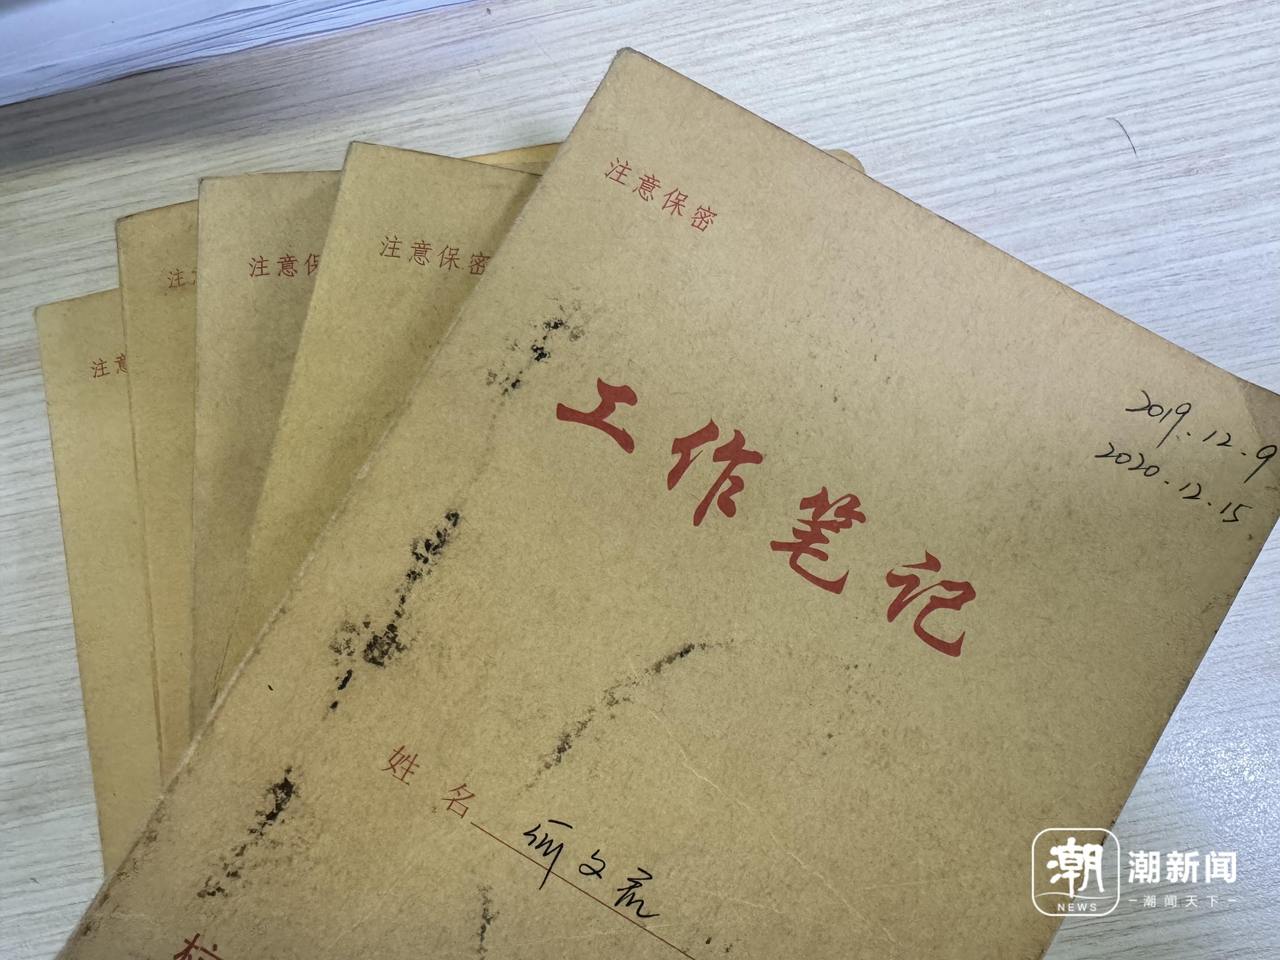 注意保密
注意保密
注意保
注
注意
工作笔记
2019.12.9
2020.12.15
姓名
杭
潮
NEWS
潮新闻
潮闻天下